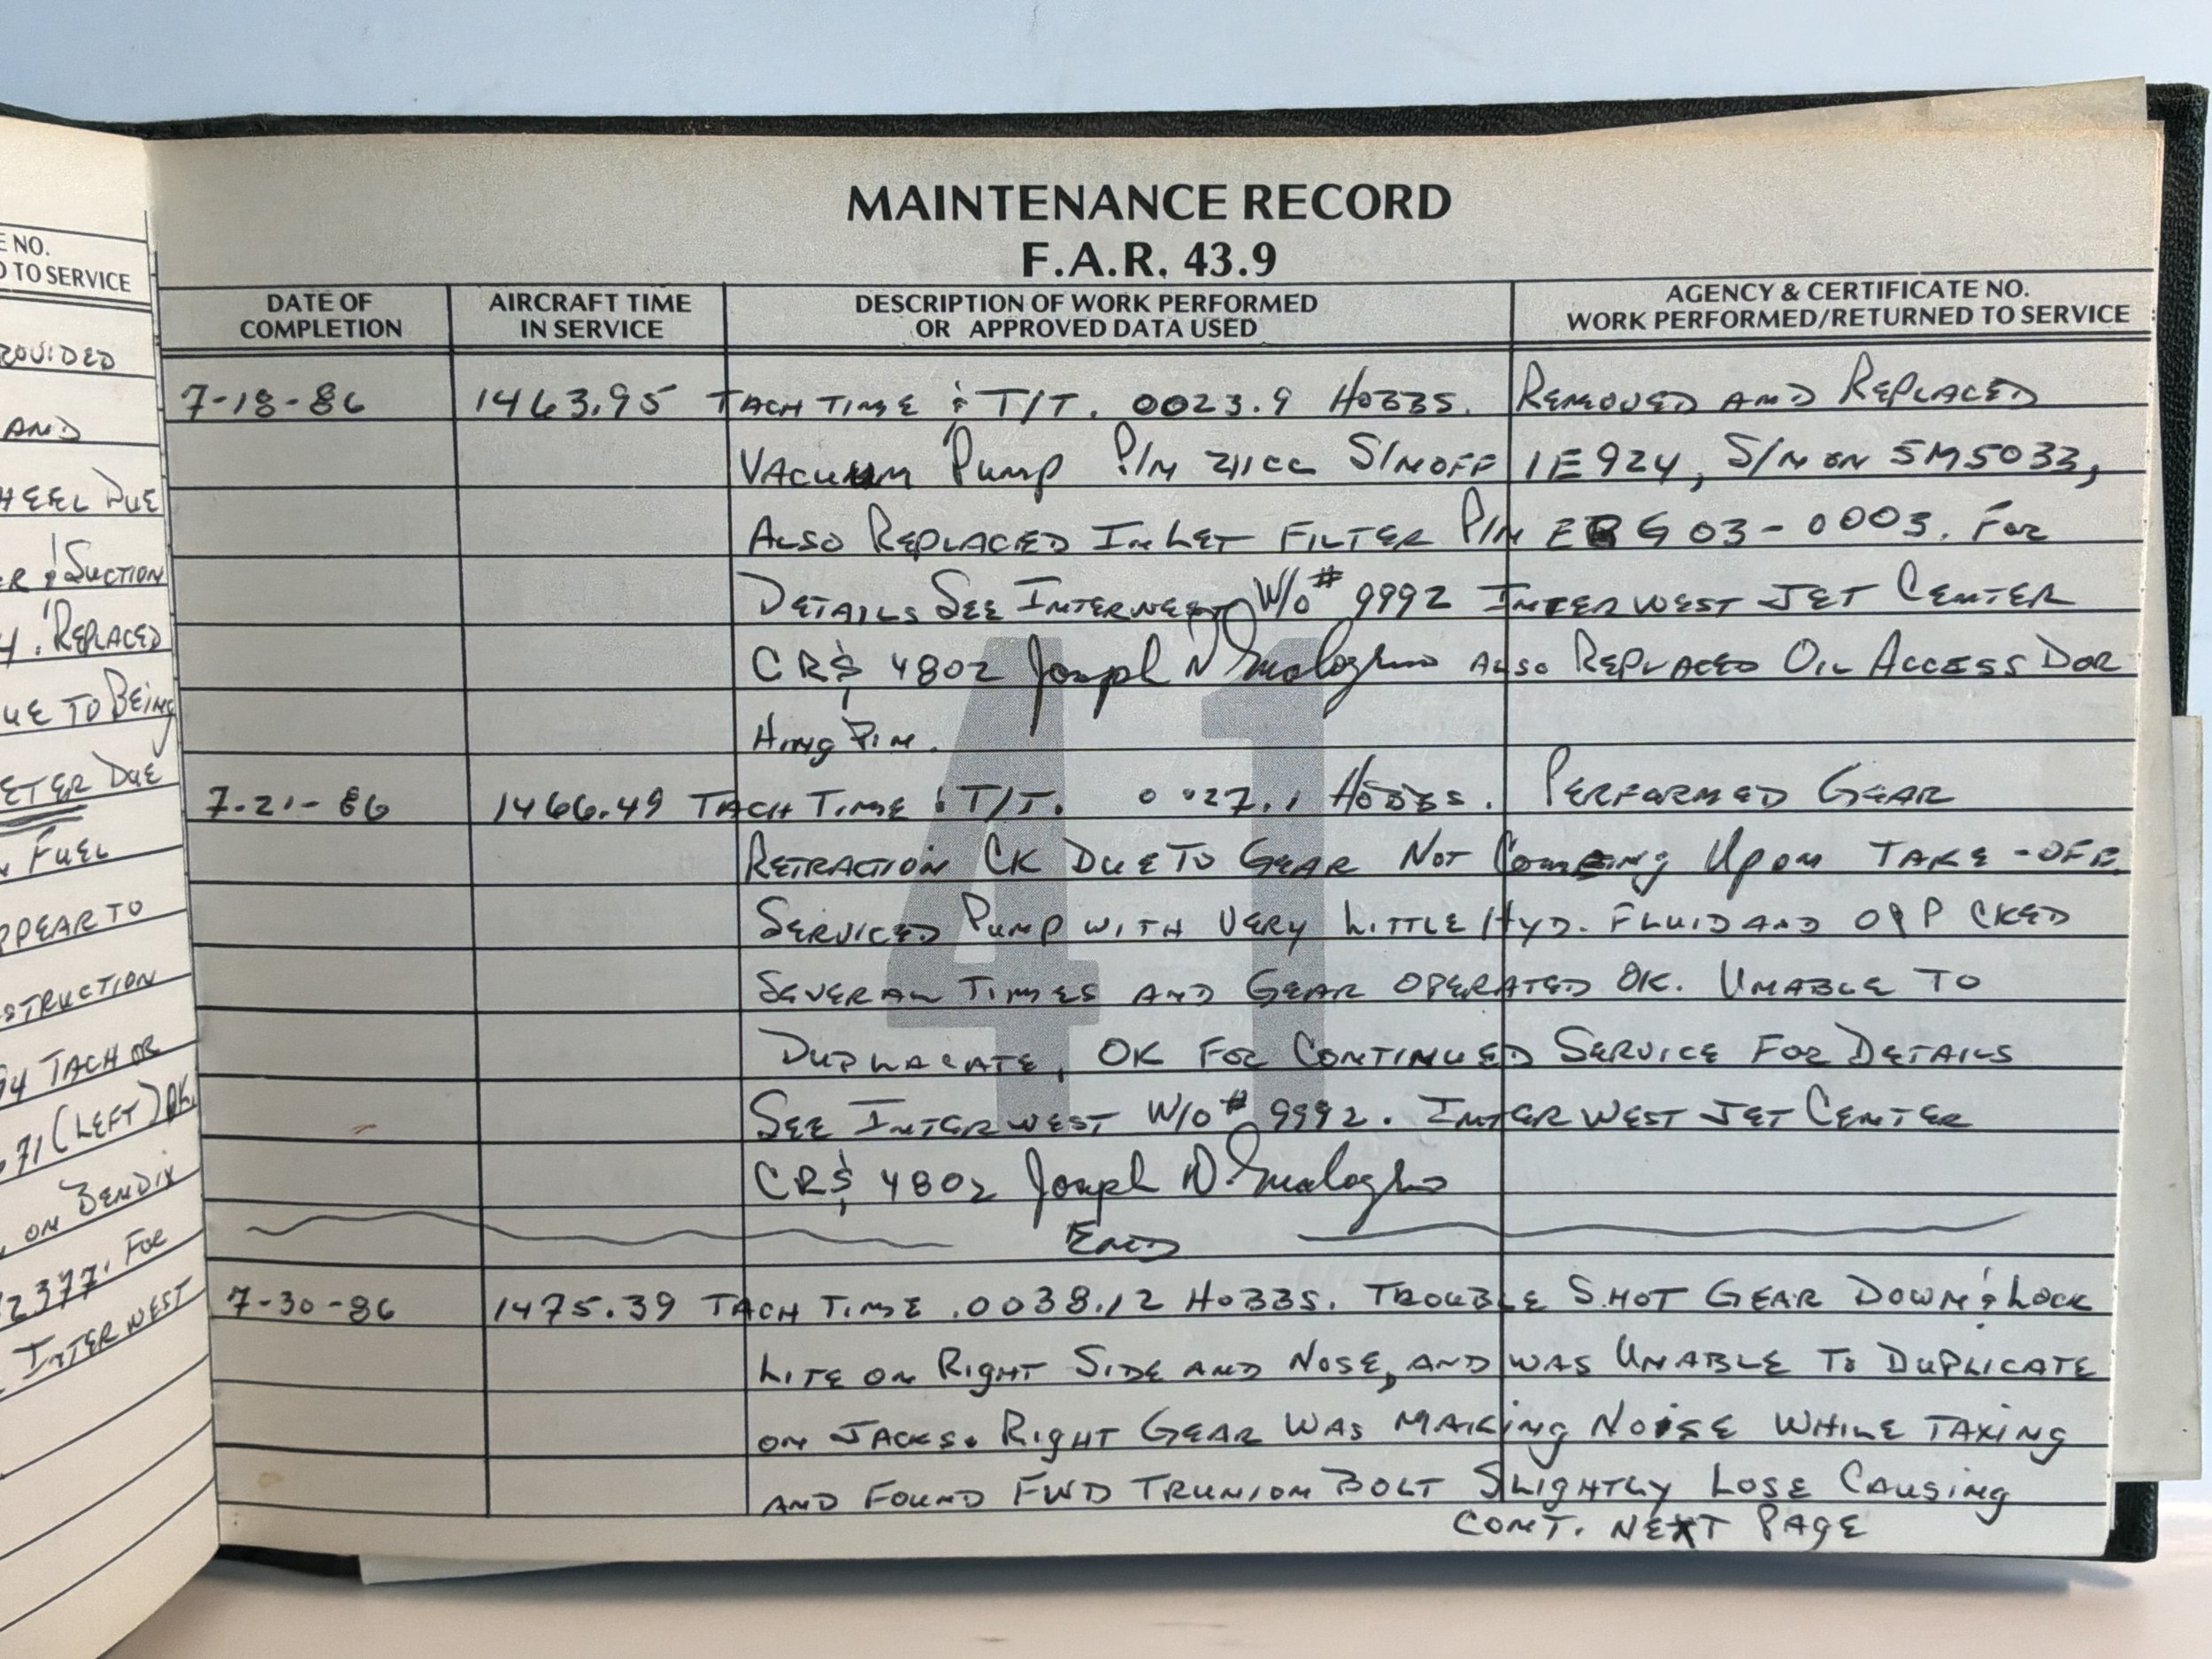 E NO.
D TO SERVICE
ROVIDED
AND
HEEL DUE
ER & SUCTION
4. REPLACED
UE TO BEING
ETER DUE
N FUEL
PPEAR TO
STRUCTION
94 TACH OR
71 (LEFT) OK.
ON BENDIX
2377. FOR
INTERWEST
MAINTENANCE RECORD
F.A.R. 43.9
DATE OF COMPLETION
AIRCRAFT TIME IN SERVICE
DESCRIPTION OF WORK PERFORMED OR APPROVED DATA USED
AGENCY & CERTIFICATE NO. WORK PERFORMED/RETURNED TO SERVICE
7-18-86 1463.95 TACH TIME & T/T. 0023.9 HOBBS. REMOVED AND REPLACED
VACUUM PUMP P/N 211CC S/N OFF 1E924, S/N ON 5M5033,
ALSO REPLACED INLET FILTER P/N EBG 03-0003. FOR
DETAILS SEE INTERWEST W/O # 9992 INTERWEST JET CENTER
CRS 4802 Joseph ALSO REPLACED OIL ACCESS DOR
HING PIN.
41
7-21-86 1466.49 TACH TIME & T/T. 0027.1 HOBBS. PERFORMED GEAR
RETRACTION CK DUE TO GEAR NOT COMEING UPON TAKE-OFF.
SERVICED PUMP WITH VERY LITTLE HYD. FLUID AND OPP CKED
SEVERAL TIMES AND GEAR OPERATED OK. UNABLE TO
DUPLACATE, OK FOR CONTINUED SERVICE FOR DETAILS
SEE INTERWEST W/O # 9992. INTERWEST JET CENTER
CRS 4802 Joseph
END
7-30-86 1475.39 TACH TIME .0038.12 HOBBS. TROUBLE SHOT GEAR DOWN & LOCK
LITE ON RIGHT SIDE AND NOSE, AND WAS UNABLE TO DUPLICATE
ON JACKS. RIGHT GEAR WAS MAKING NOISE WHILE TAXING
AND FOUND FWD TRUNION BOLT SLIGHTLY LOSE CAUSING
CONT. NEXT PAGE